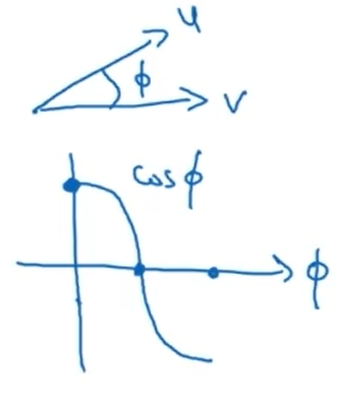 u
ϕ
v
cos ϕ
ϕ